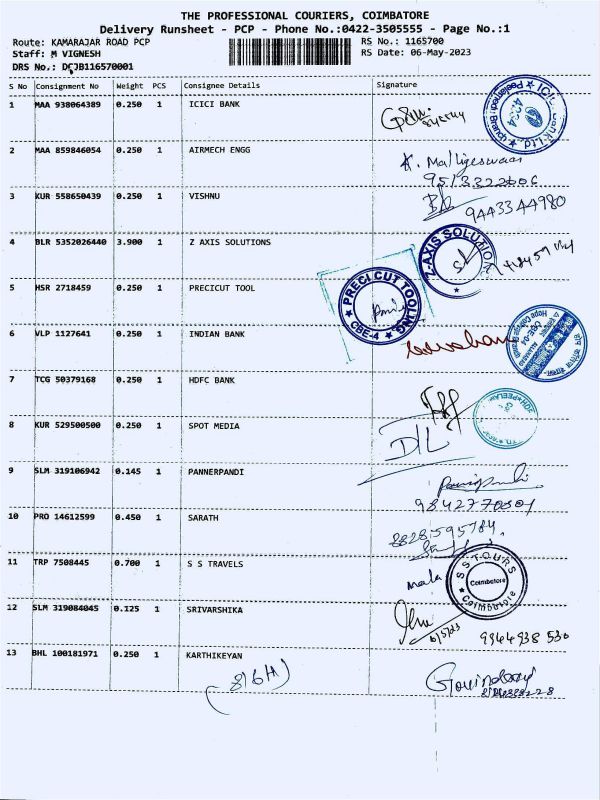 THE PROFESSIONAL COURIERS, COIMBATORE
Delivery Runsheet - PCP - Phone No.:0422-3505555 - Page No.:1
Route: KAMARAJAR ROAD PCP RS No.: 1165700
Staff: M VIGNESH RS Date: 06-May-2023
DRS No.: 116570001
S No Consignment No Weight PCS Consignee Details Signature
1 MAA 938064389 0.250 1 ICICI BANK
2 MAA 859846054 0.250 1 AIRMECH ENGG
3 KUR 558650439 0.250 1 VISHNU
9443344980
4 BLR 5352026440 3.900 1 Z AXIS SOLUTIONS
Z-AXIS SOLUTION
5 HSR 2718459 0.250 1 PRECICUT TOOL
PRECI CUT TOOLING
CBE-4
6 VLP 1127641 0.250 1 INDIAN BANK
7 TCG 50379168 0.250 1 HDFC BANK
8 KUR 529500500 0.250 1 SPOT MEDIA
D/L
9 SLM 319106942 0.145 1 PANNERPANDI
10 PRO 14612599 0.450 1 SARATH
11 TRP 7508445 0.700 1 S S TRAVELS
mala
S S TOURS
Coimbatore
Coimbatore
12 SLM 319084045 0.125 1 SRIVARSHIKA
6/5/23 9344938 530
13 BHL 100181971 0.250 1 KARTHIKEYAN